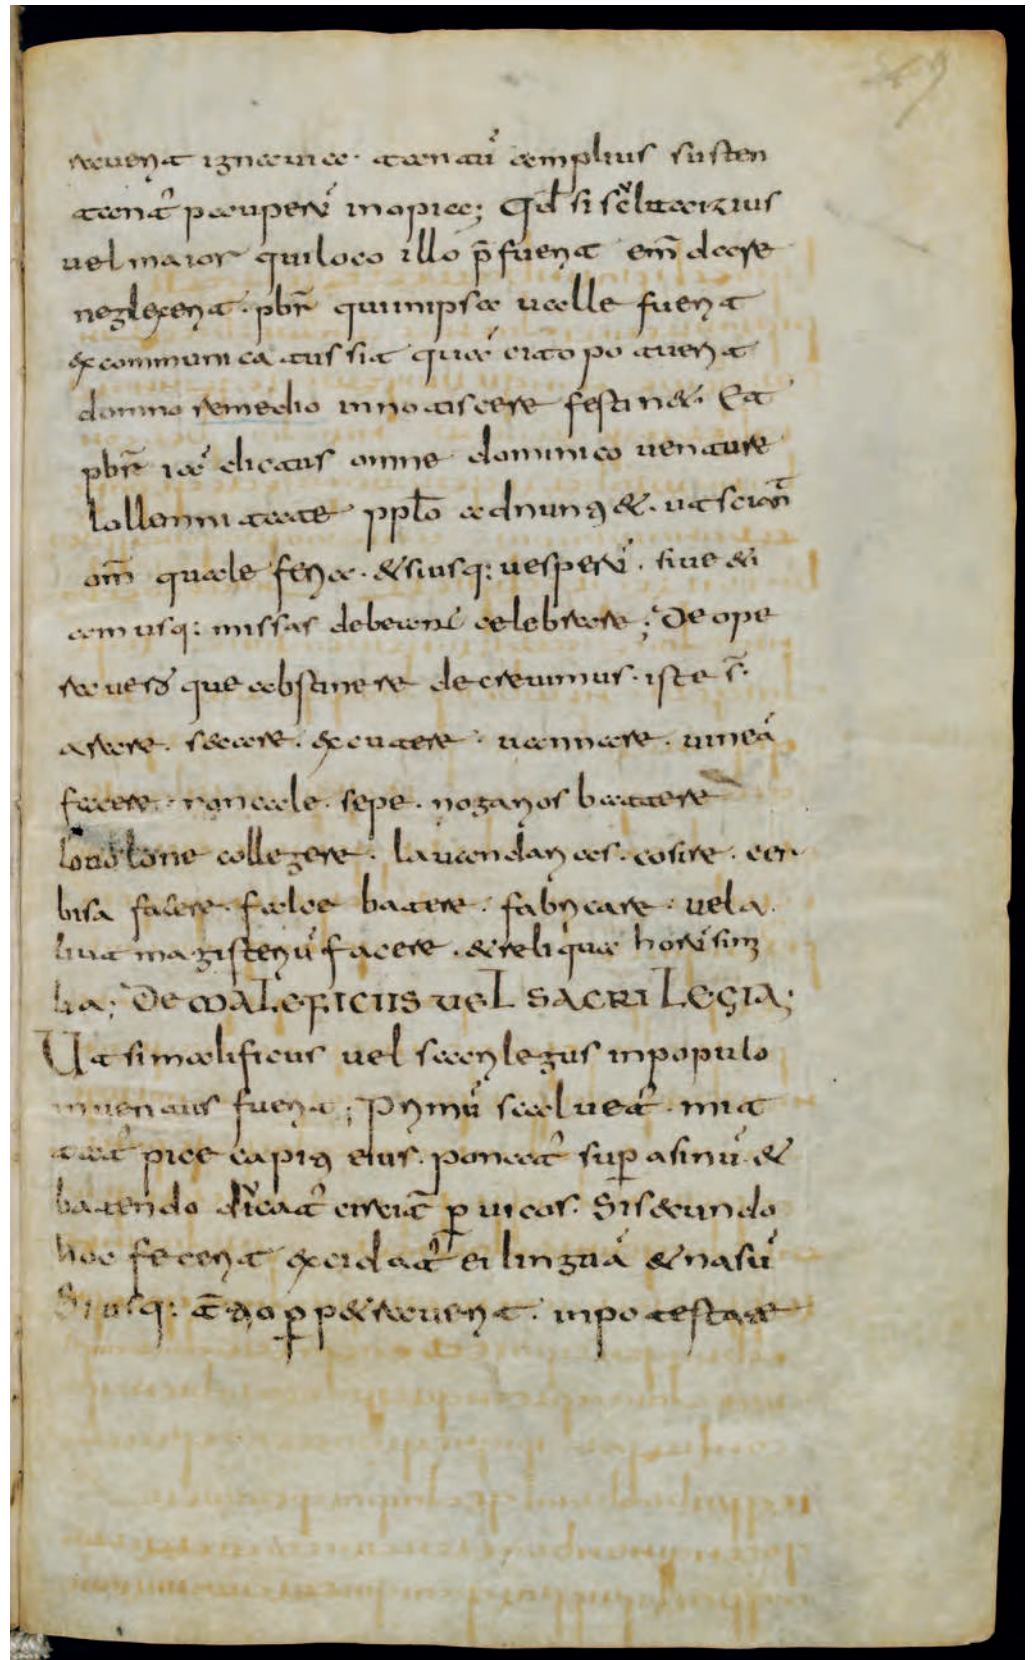 rauerit ignauia· tantu᷄ amplius susten
tant᷄ pauperu᷄ inopia; Qđ si scultaizius
uel maior qui loco illo p̄fuerit em̄dare
neglexerit· pbr̄ qui in ipsa ualle fuerit
excommunicatus sit qua᷄ cito potuerit
domno remedio innotiscere festinet· Et
pbr̄ iа᷄ dictus omne dominico uenture
sollemnitate ppło adnuntiet· ut sciant̄
om̄ quale feria· et siusq: uesperu᷄· siue eti
am usq: missas debeant celebrare; De ope
ra uero que abstinere decreuimus· iste s̄·
arare· secare· excutere· uannare· uinea᷄
facere· roncale· sepe· nogarios battere
collegere· lauandarias· cosire· cer
bisa facere· falce batere· fabricare· uel a
liut magisteriu᷄ facere· et reliqua horu᷄ simi
lia; De MALEFICIIS UEL SACRILEGIA;
Ut si malificus uel sacrilegus in populo
inuentus fuerit; Primu᷄ scaluet᷄· mit
tat᷄ pice capiti eius· ponat᷄ sup asinu᷄· et
batendo dicat᷄ circit̄ p uicos· Si secundo
hoc fecerit excidat᷄ ei lingua᷄ et nasu᷄
Si usq: tertio ppetrauerit· in potestate